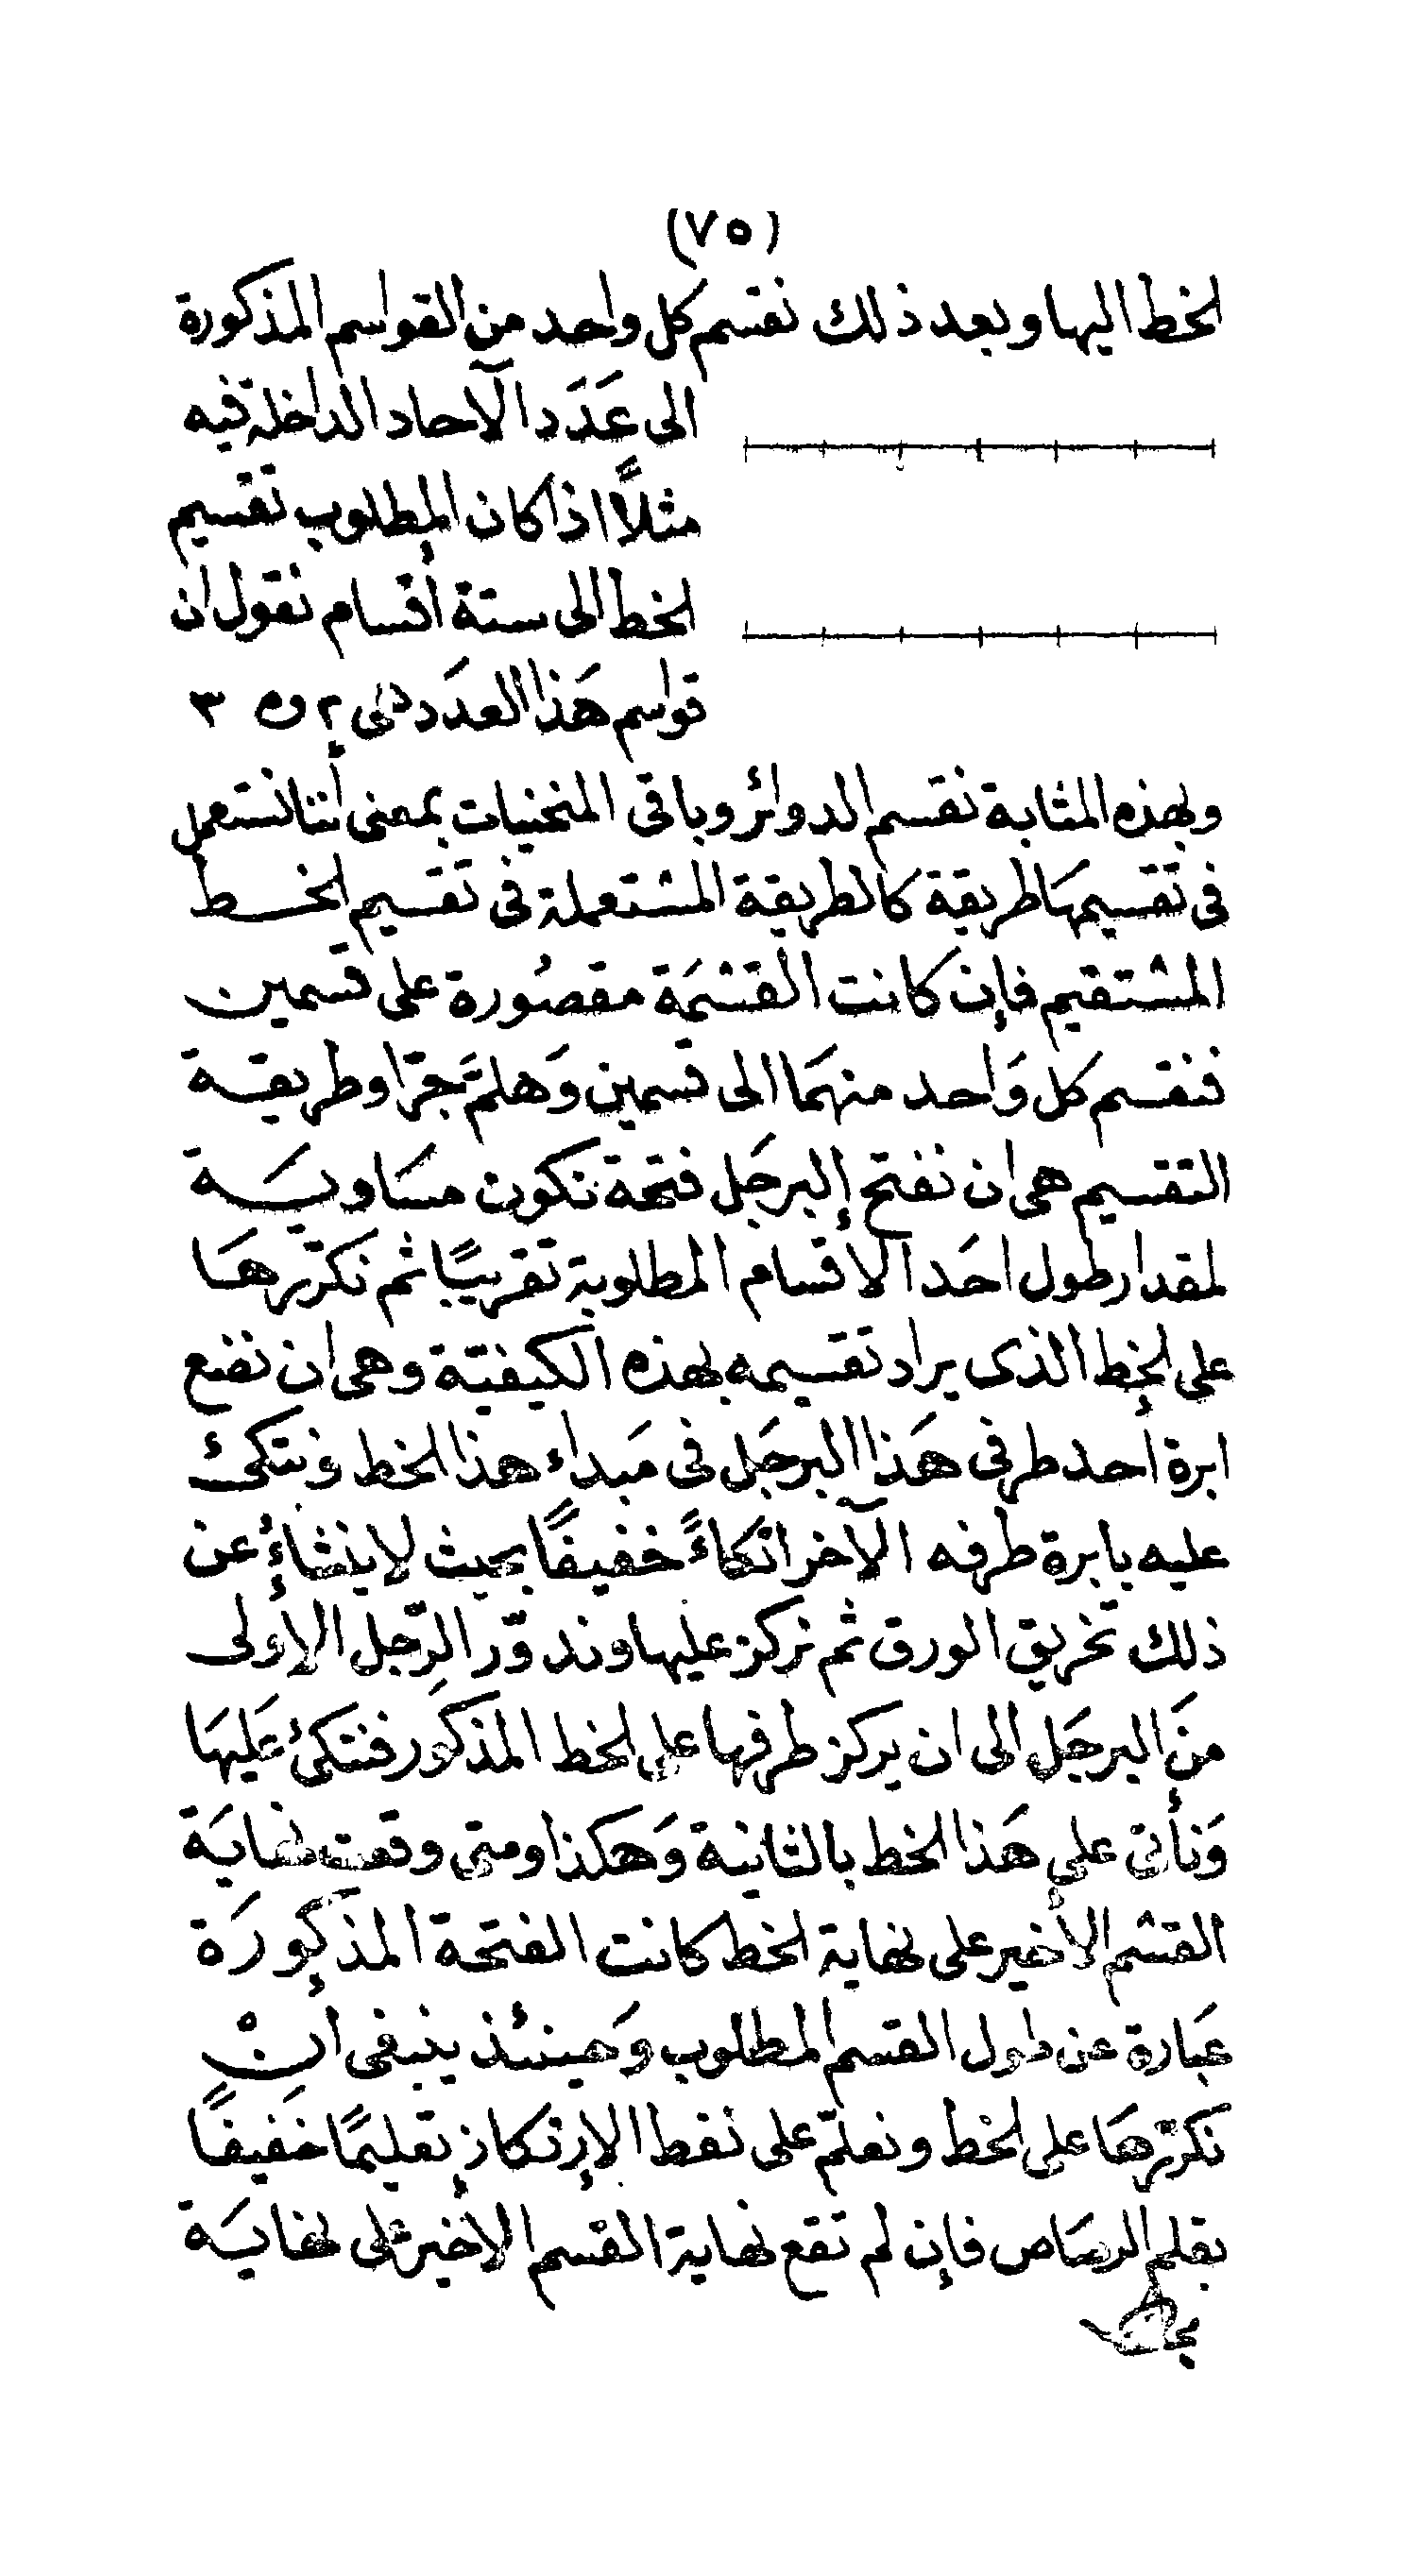 (٧٥)
الخط اليها وبعد ذلك نقسم كل واحد من القواسم المذكورة
الى عَدَد الآحاد الداخلة فيه
مثلاً اذا كان المطلوب تقسيم
الخط الى ستة أقسام نقول ان
قواسم هَذا العدَد هى ٢ و ٣
وبهذه المثابة نقسم الدوائر وباقى المنحنيات بمعنى أننا نستعمل
فى تقسيمهَا طريقة كالطريقة المستعملة فى تقسيم الخط
المستقيم فإن كانت القسْمَة مقصُورة على قسمين
فنقسم كل وَاحد منهمَا الى قسمين وَهلمَّ جرّا وطريقة
التقسيم هى ان نفتح البرجَل فتحة تكون مسَاويَة
لمقدار طول احَد الأقسام المطلوبة تقريبًا ثم نَكرّرهَا
على الخط الذى يراد تقسيمه بهذه الكيفيّة وهى ان نضع
ابرة أحد طرفى هَذا البرجَل فى مَبداء هذا الخط ونتكئ
عليه بابرة طرفه الآخر اتكاءً خفيفًا بحيث لا ينشاءُ عن
ذلك تخريق الورق ثم نركز عليها وندوّر الرّجل الأولى
منَ البرجَل الى ان يركز طرفها على الخط المذكور فنتكئ عَليهَا
وَنأتى على هَذا الخط بالثانية وَهكذا ومتى وقعت نهايَة
القسم الأخير على نهاية الخط كانت الفتحة المذكورَة
عبَارة عن طول القسم المطلوب وَحينئذ ينبغى انْ
نكرّرهَا على الخط ونعلّم على نقط الإرتكاز تعليمًا خَفيفًا
بقلم الرصَاص فإن لم تقع نهاية القسم الأخير على نهايَة